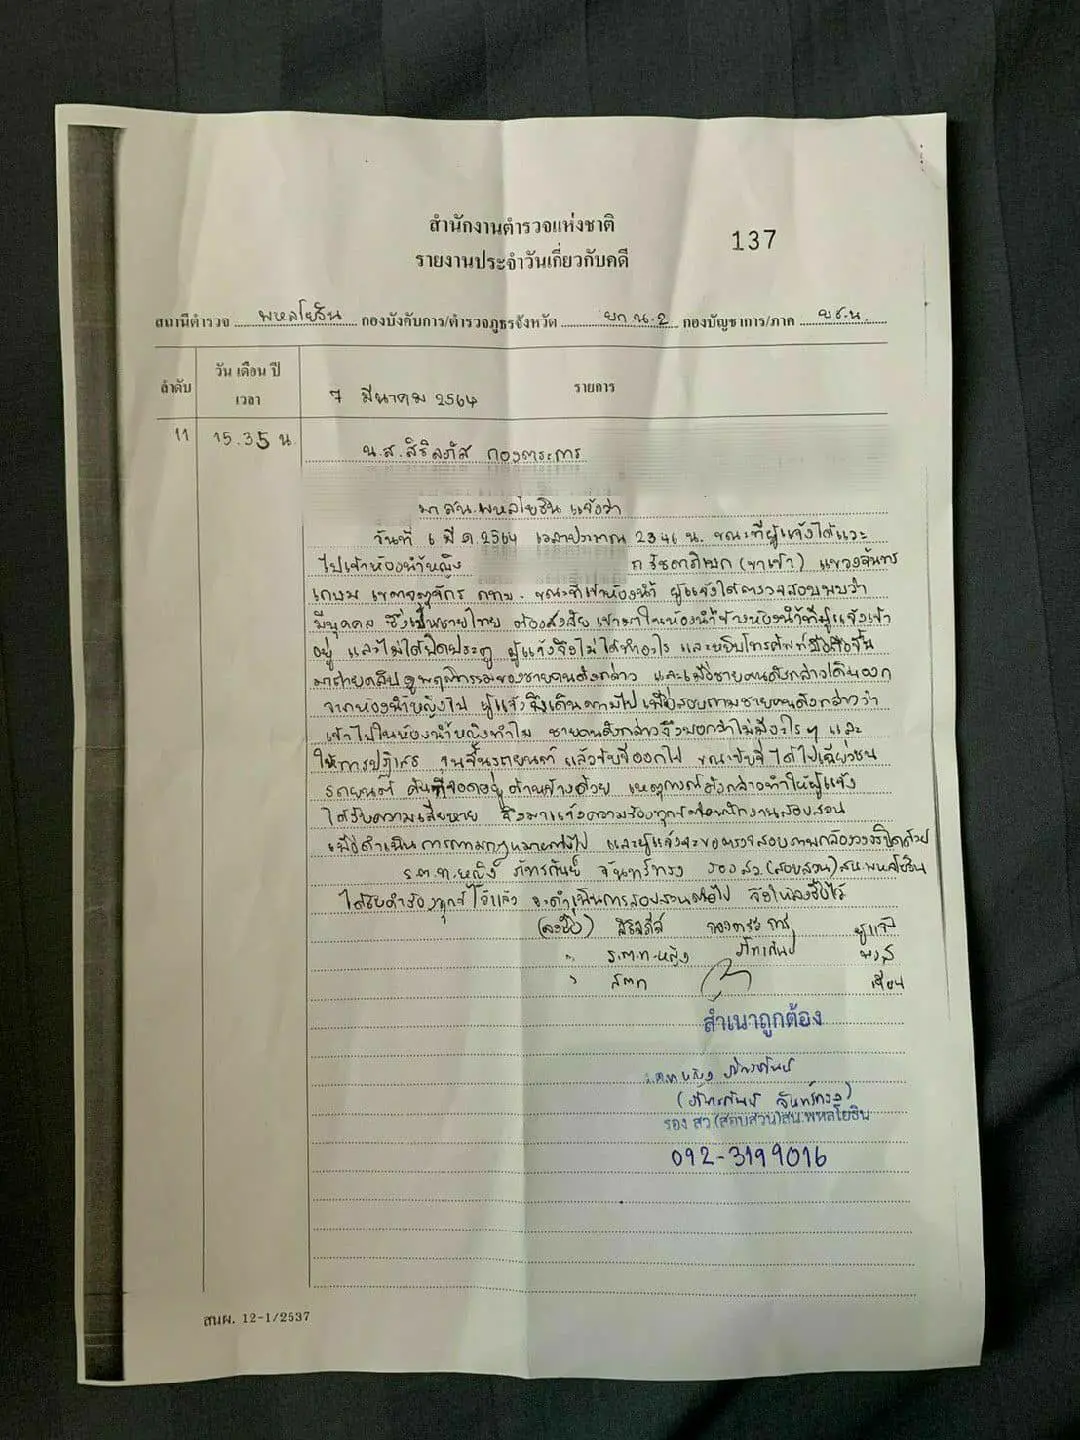 สำนักงานตำรวจแห่งชาติ
137
รายงานประจำวันเกี่ยวกับคดี
สถานีตำรวจ พหลโยธิน กองบังคับการ/ตำรวจภูธรจังหวัด บก.น.2 กองบัญชาการ/ภาค บช.น.
ลำดับ วัน เดือน ปี เวลา 7 มีนาคม 2564 รายการ
11 15.35 น. น.ส.สิริลภัส กองตระการ
มา สน.พหลโยธิน แจ้งว่า
วันที่ 6 มี.ค.2564 เวลาประมาณ 23.41 น. ขณะที่ผู้แจ้งได้แวะ
ไปเข้าห้องน้ำหญิง ถ.รัชดาภิเษก (ขาเข้า) แขวงจันทร
เกษม เขตจตุจักร กทม. ขณะที่เข้าห้องน้ำ ผู้แจ้งได้ตรวจสอบพบว่า
มีบุคคล ซึ่งเป็นชายไทย ต้องสงสัย เข้ามาในห้องน้ำข้างห้องน้ำที่ผู้แจ้งเข้า
อยู่ และไม่ได้ปิดประตู ผู้แจ้งจึงไม่ได้ทำอะไร และหยิบโทรศัพท์มือถือขึ้น
มาถ่ายคลิปดูพฤติกรรมของชายคนดังกล่าว และเมื่อชายคนดังกล่าวเดินออก
จากห้องน้ำหญิงไป ผู้แจ้งจึงเดินตามไป เพื่อสอบถามชายคนดังกล่าวว่า
เข้าไปในห้องน้ำหญิงทำไม ชายคนดังกล่าวจึงบอกว่าไม่มีอะไรๆ และ
ให้การปฏิเสธ จนขึ้นรถยนต์ แล้วขับขี่ออกไป ขณะขับขี่ ได้ไปเฉี่ยวชน
รถยนต์ คันที่จอดอยู่ด้านข้างด้วย เหตุการณ์ดังกล่าวทำให้ผู้แจ้ง
ได้รับความเสียหาย จึงมาแจ้งความร้องทุกข์ต่อพนักงานสอบสวน
เพื่อดำเนินการตามกฎหมายต่อไป และผู้แจ้งจะขอตรวจสอบตามกล้องวงจรปิดด้วย
ร.ต.ท.หญิง ภัทรกันย์ จันทร์ทรง รอง สว.(สอบสวน) สน.พหลโยธิน
ได้รับคำร้องทุกข์ไว้แล้ว จะดำเนินการสอบสวนต่อไป จึงให้ลงชื่อไว้
(ลงชื่อ) สิริลภัส กองตระการ ผู้แจ้ง
" ร.ต.ท.หญิง ภัทรกันย์ พงส
" ส.ต.ต เขียน
สำเนาถูกต้อง
ร.ต.ท.หญิง ภัทรกันย์
(ภัทรกันย์ จันทร์ทรง)
รอง สว.(สอบสวน)สน.พหลโยธิน
092-3199016
สนผ. 12-1/2537